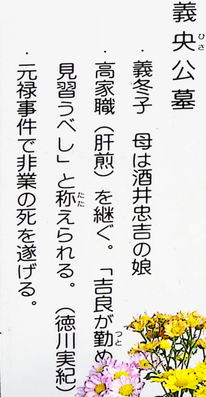 義央公墓
ひさ
・義冬子　母は酒井忠吉の娘
・高家職（肝煎）を継ぐ。「吉良が勤め
つと
見習うべし」と称えられる。（徳川実紀）
たた
・元禄事件で非業の死を遂げる。